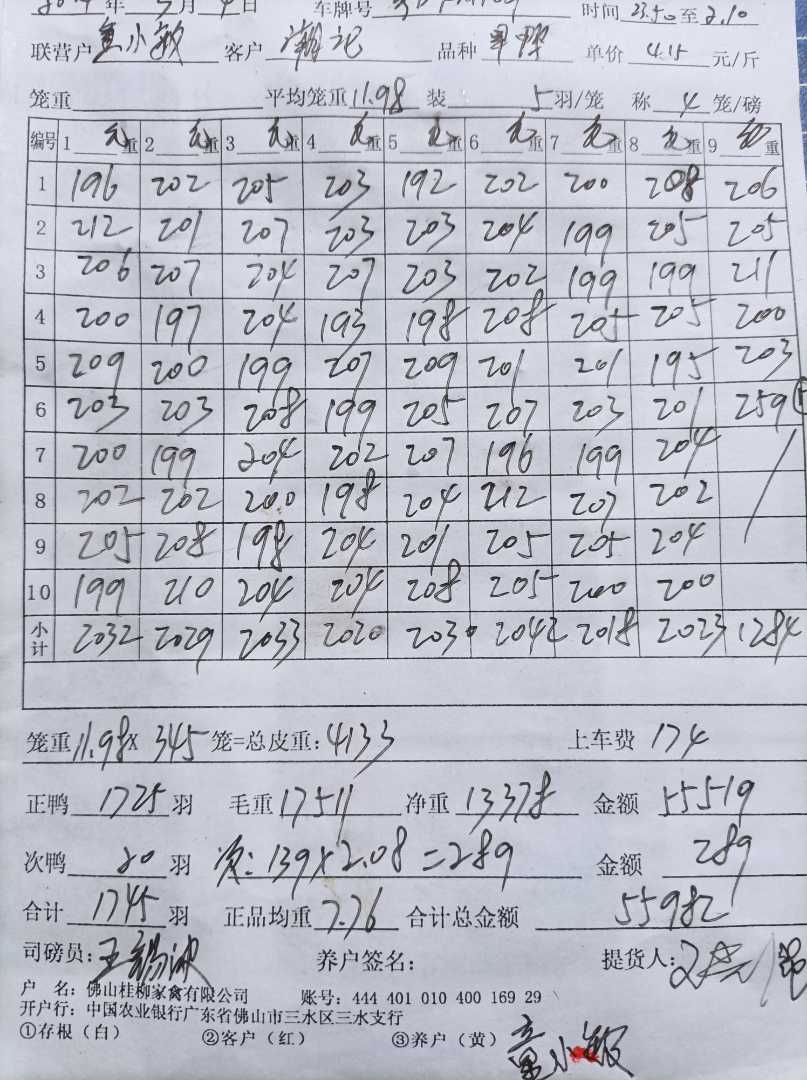 年 月 4 日 车牌号 时间 23.50 至 2.10
联营户 童小敏 客户 潮记 品种 单价 4.15 元/斤
笼重 平均笼重 11.98 装 5 羽/笼 称 4 笼/磅
编号 1 毛重 2 毛重 3 毛重 4 毛重 5 毛重 6 毛重 7 毛重 8 毛重 9 毛重
1 196 202 205 203 192 202 200 208 206
2 212 201 207 203 203 204 199 205 205
3 206 207 204 207 203 202 199 199 211
4 200 197 204 193 198 208 205 205 200
5 209 200 199 207 209 201 201 195 203
6 203 203 208 199 205 207 203 201 259
7 200 199 204 202 207 196 199 204
8 202 202 200 198 204 212 207 202
9 205 208 198 204 201 205 205 204
10 199 210 204 204 208 205 200 200
小计 2032 2029 2033 2020 2030 2042 2018 2023 1284
笼重 11.98 x 345 笼=总皮重: 4133 上车费 174
正鸭 1725 羽 毛重 17511 净重 13378 金额 55519
次鸭 20 羽 次: 139 x 2.08 = 289 金额 289
合计 1745 羽 正品均重 7.76 合计总金额 55982
司磅员: 王锡波 养户签名: 提货人:
户 名: 佛山桂柳家禽有限公司 账号: 444 401 010 400 169 29
开户行: 中国农业银行广东省佛山市三水区三水支行
①存根(白) ②客户(红) ③养户(黄) 童小敏